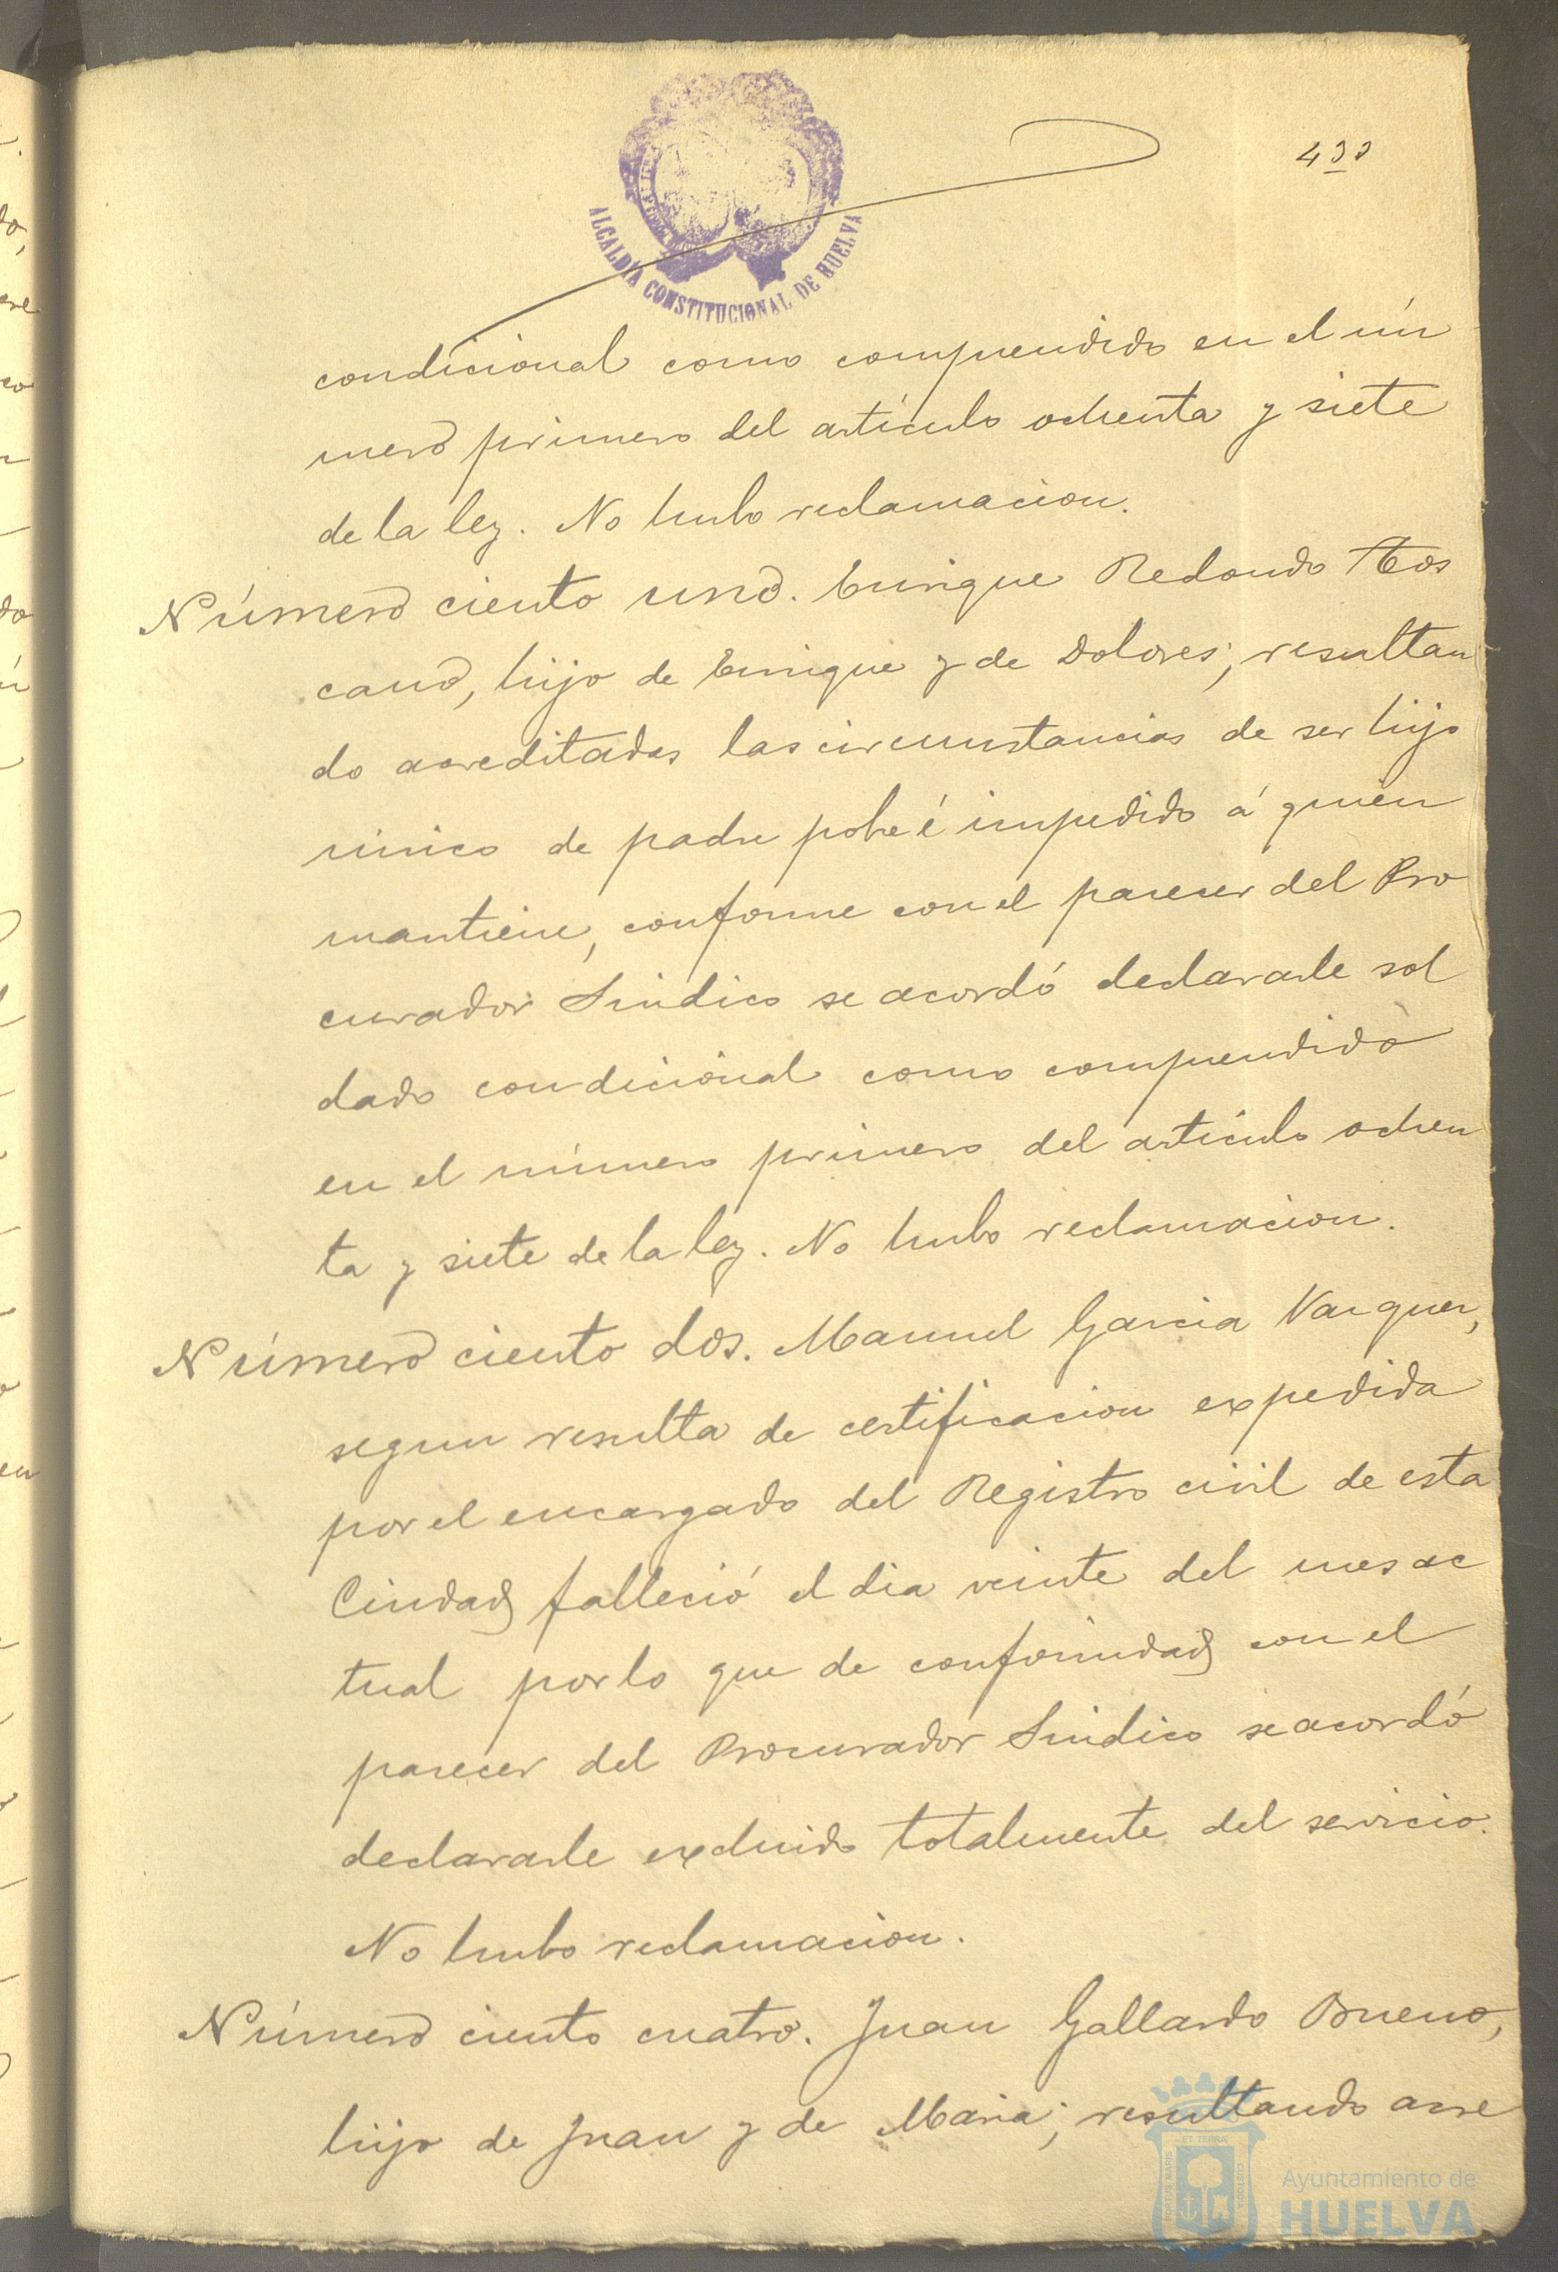 433
ALCALDÍA CONSTITUCIONAL DE HUELVA
condicional como comprendido en el nú
mero primero del artículo ochenta y siete
de la ley. No hubo reclamacion.
Número ciento uno. Enrique Redondo Tos
cano, hijo de Enrique y de Dolores; resultan
do acreditadas las circunstancias de ser hijo
único de padre pobre é impedido á quien
mantiene, conforme con el parecer del Pro
curador Sindico se acordó declararle sol
dado condicional como comprendido
en el número primero del artículo ochen
ta y siete de la ley. No hubo reclamacion.
Número ciento dos. Manuel Garcia Vazquez,
segun resulta de certificacion expedida
por el encargado del Registro civil de esta
Ciudad falleció el dia veinte del mes ac
tual por lo que de conformidad con el
parecer del Procurador Sindico se acordó
declararle excluido totalmente del servicio.
No hubo reclamacion.
Número ciento cuatro. Juan Gallardo Bueno,
hijo de Juan y de Maria; resultando acre
Ayuntamiento de
HUELVA